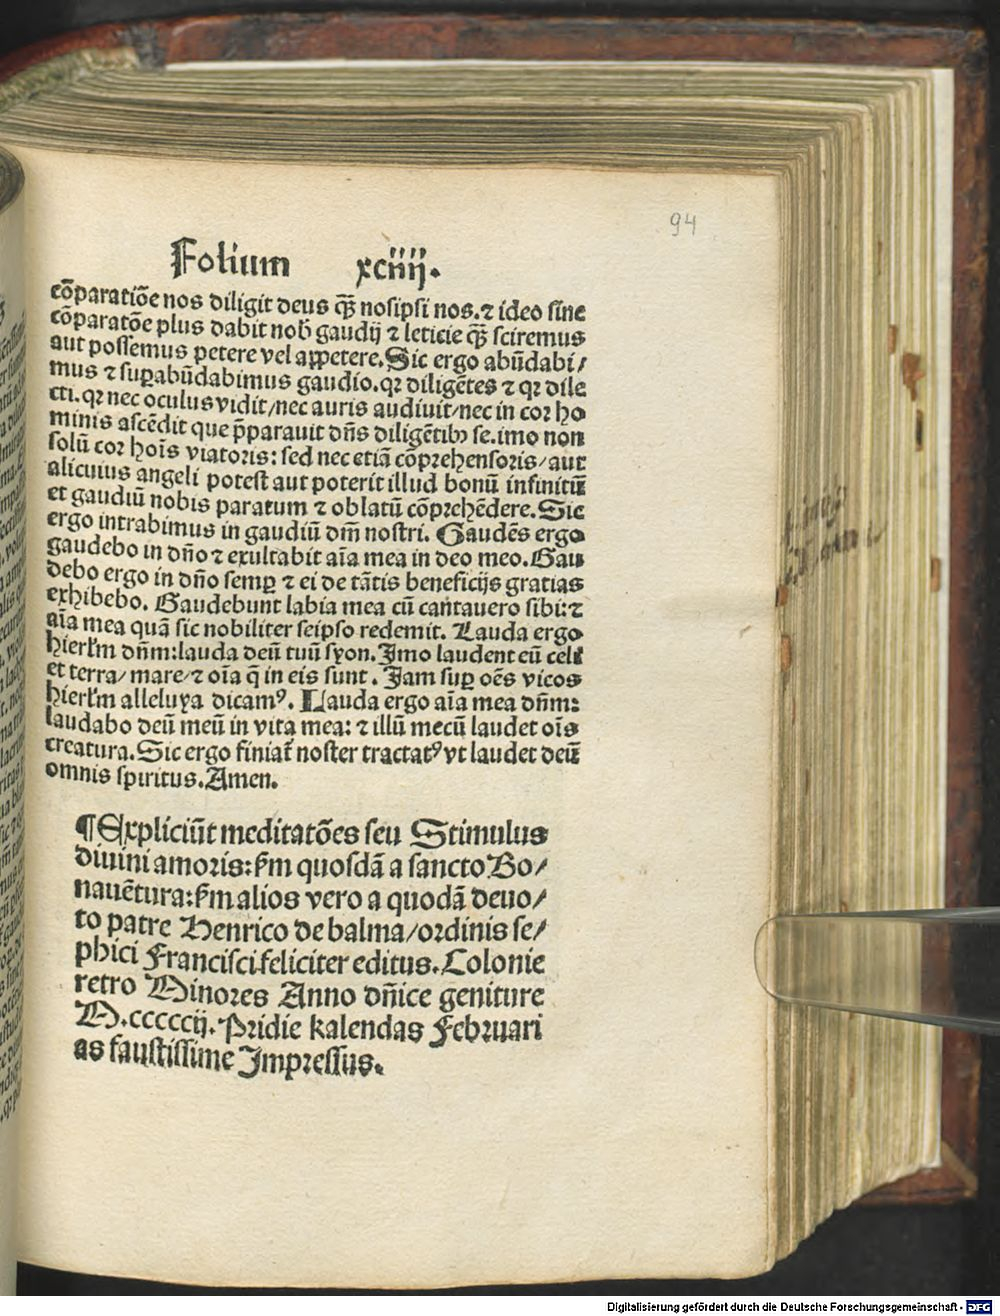 94
Folium xciiij.
cōparatiōe nos diligit deus q̄ꝫ nosipsi nos.⁊ ideo sine
cōparatōe plus dabit nob̄ gaudij ⁊ leticie q̄ꝫ sciremus
aut possemus petere vel appetere. Sic ergo abūdabi/
mus ⁊ suꝑabūdabimus gaudio. qꝛ diligētes ⁊ qꝛ dile
cti. qꝛ nec oculus vidit/nec auris audiuit/nec in coꝛ ho
minis ascēdit que p̄parauit dn̄s diligētibꝰ se. imo non
solū coꝛ hoīs viatoꝛis: sed nec etiā cōpꝛehensoꝛis/aut
alicuius angeli potest aut poterit illud bonū infinitū
et gaudiū nobis paratum ⁊ oblatū cōpꝛehēdere. Sic
ergo intrabimus in gaudiū dn̄i nostri. Gaudēs ergo
gaudebo in dn̄o ⁊ exultabit aīa mea in deo meo. Gau
debo ergo in dn̄o semꝑ ⁊ ei de tātis beneficijs gratias
exhibebo. Gaudebunt labia mea cū cantauero tibi:⁊
aīa mea quā sic nobiliter seipso redemit. Lauda ergo
hierl̄m dn̄m:lauda deū tuū syon. Imo laudent eū celi
et terra/mare/⁊ oīa q̄ in eis sunt. Jam suꝑ oēs vicos
hierl̄m alleluya dicamꝰ. Lauda ergo aīa mea dn̄m:
laudabo deū meū in vita mea: ⁊ illū mecū laudet oīs
creatura. Sic ergo finiat̄ noster tractatꝰ vt laudet deū
omnis spiritus. Amen.
¶ Expliciūt meditatōes seu Stimulus
diuini amoris: s̄m quosdā a sancto Bo/
nauētura: s̄m alios vero a quodā deuo/
to patre Henrico de balma/oꝛdinis se/
phici Francisci feliciter editus. Colonie
retro Minoꝛes Anno dn̄ice geniture
M.cccccij. Pꝛidie kalendas Februari
as faustissime Impꝛessus.
Digitalisierung gefördert durch die Deutsche Forschungsgemeinschaft - DFG